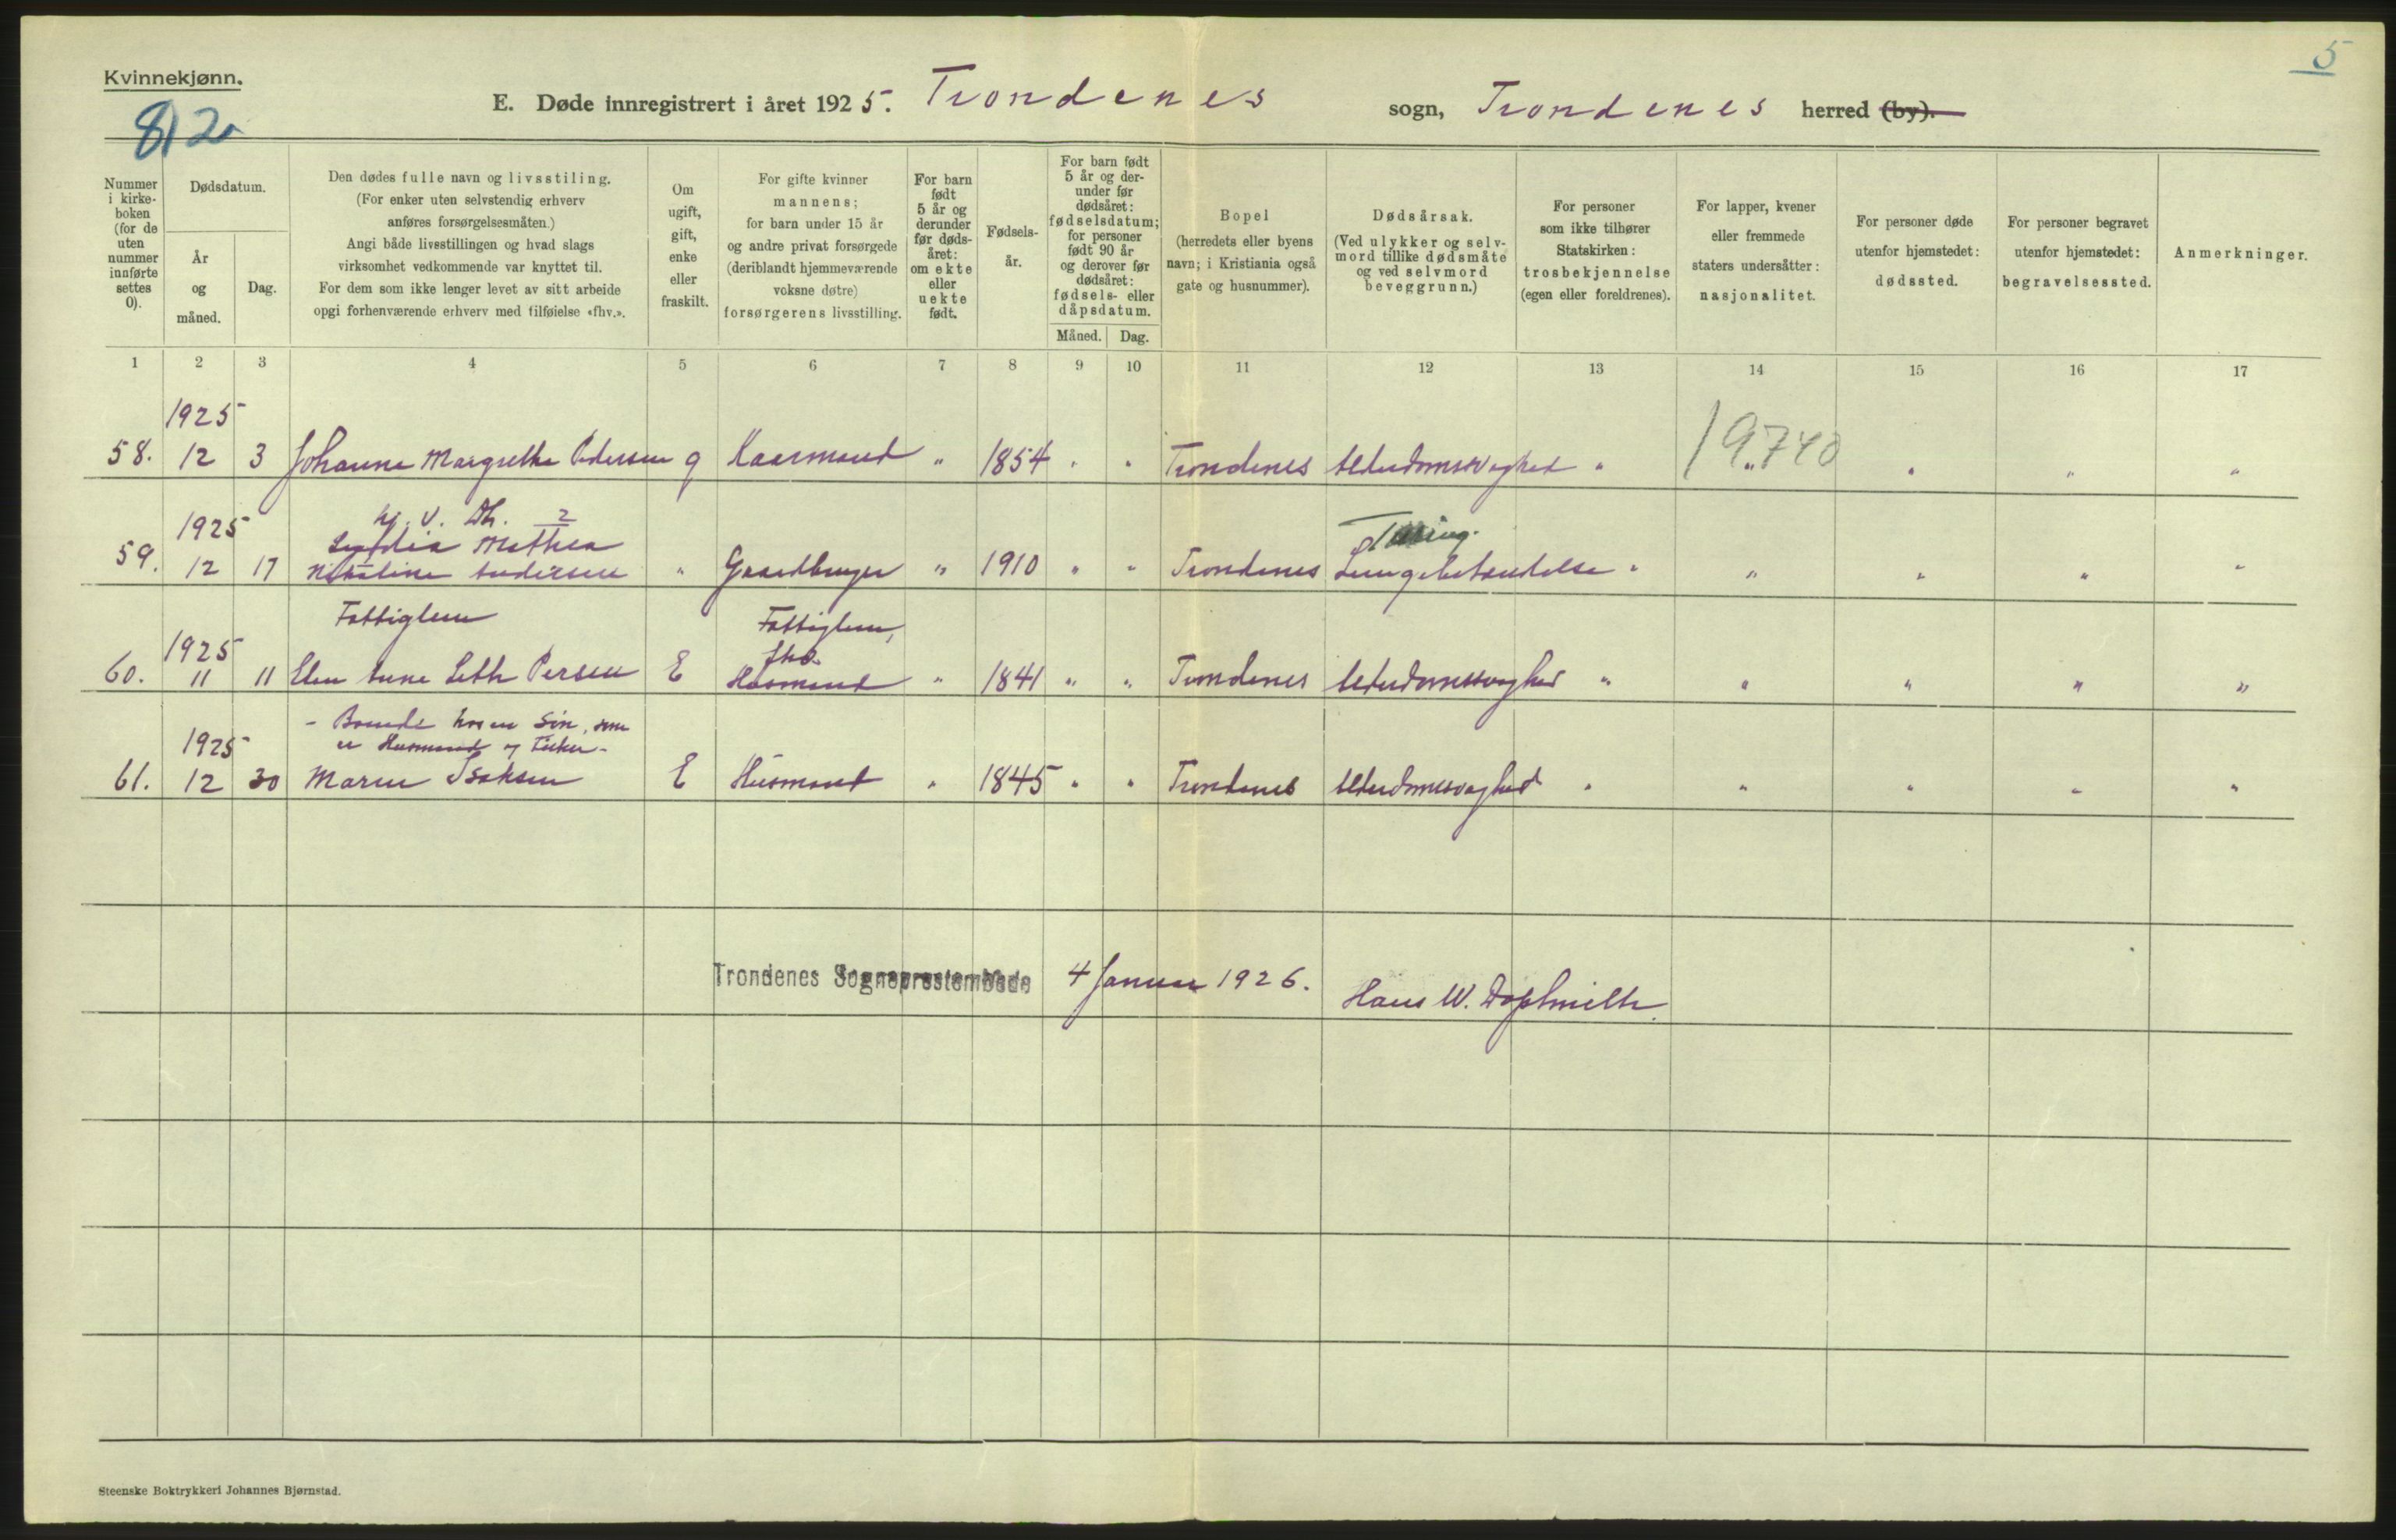 Kvinnekjønn.
812
5
E. Døde innregistrert i året 1925. Trondenes sogn, Trondenes herred (by).
Nummer i kirke-boken (for de uten nummer innførte settes 0).
Dødsdatum.
År og måned.
Dag.
Den dødes fulle navn og livsstiling.
(For enker uten selvstendig erhverv
anføres forsørgelsesmåten.)
Angi både livsstillingen og hvad slags
virksomhet vedkommende var knyttet til.
For dem som ikke lenger levet av sitt arbeide
opgi forhenværende erhverv med tilføielse «fhv.».
Om ugift, gift, enke eller fraskilt.
For gifte kvinner
mannens;
for barn under 15 år
og andre privat forsørgede
(deriblandt hjemmeværende
voksne døtre)
forsørgerens livsstilling.
For barn født 5 år og derunder før døds-året: om ekte eller uekte født.
Fødsels-år.
For barn født
5 år og der-
under før
dødsåret:
fødselsdatum;
for personer
født 90 år
og derover før
dødsåret:
fødsels- eller
dåpsdatum.
Måned. Dag.
Bopel
(herredets eller byens
navn; i Kristiania også
gate og husnummer).
Dødsårsak.
(Ved ulykker og selv-
mord tillike dødsmåte
og ved selvmord
beveggrunn.)
For personer
som ikke tilhører
Statskirken:
trosbekjennelse
(egen eller foreldrenes).
For lapper, kvener
eller fremmede
staters undersåtter:
nasjonalitet.
For personer døde
utenfor hjemstedet:
dødssted.
For personer begravet
utenfor hjemstedet:
begravelsessted.
Anmerkninger.
1 2 3 4 5 6 7 8 9 10 11 12 13 14 15 16 17
1925
58. 12 3 Johanna Margrethe Pedersen g Kaarmand " 1854 " " Trondenes Alderdomssvaghed " " " " "
19740
1925 hj. v. Dh. 2
Lydia Mathea
59. 12 17 Nikoline Andersen " Gaardbruger " 1910 " " Trondenes Lungebetændelse " " " " "
Fattiglem Fattiglem,
1925 fhv.
60. 11 11 Elen Anne Seth Persen E Husmand " 1841 " " Trondenes Alderdomssvaghed " " " " "
- Boende hos en Søn, som
1925 er Husmand og Fisker -
61. 12 30 Maren Isaksen E Husmand " 1845 " " Trondenes Alderdomssvaghed " " " " "
Trondenes Sogneprestembede 4 Januar 1926. Hans W.
Steenske Boktrykkeri Johannes Bjørnstad.